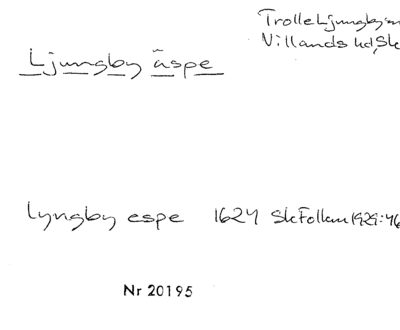 Trolle Ljungby sn
Villands hd, Sk
Ljungby äspe
Lyngby espe 1624 SkFollem 1929:46
Nr 20195